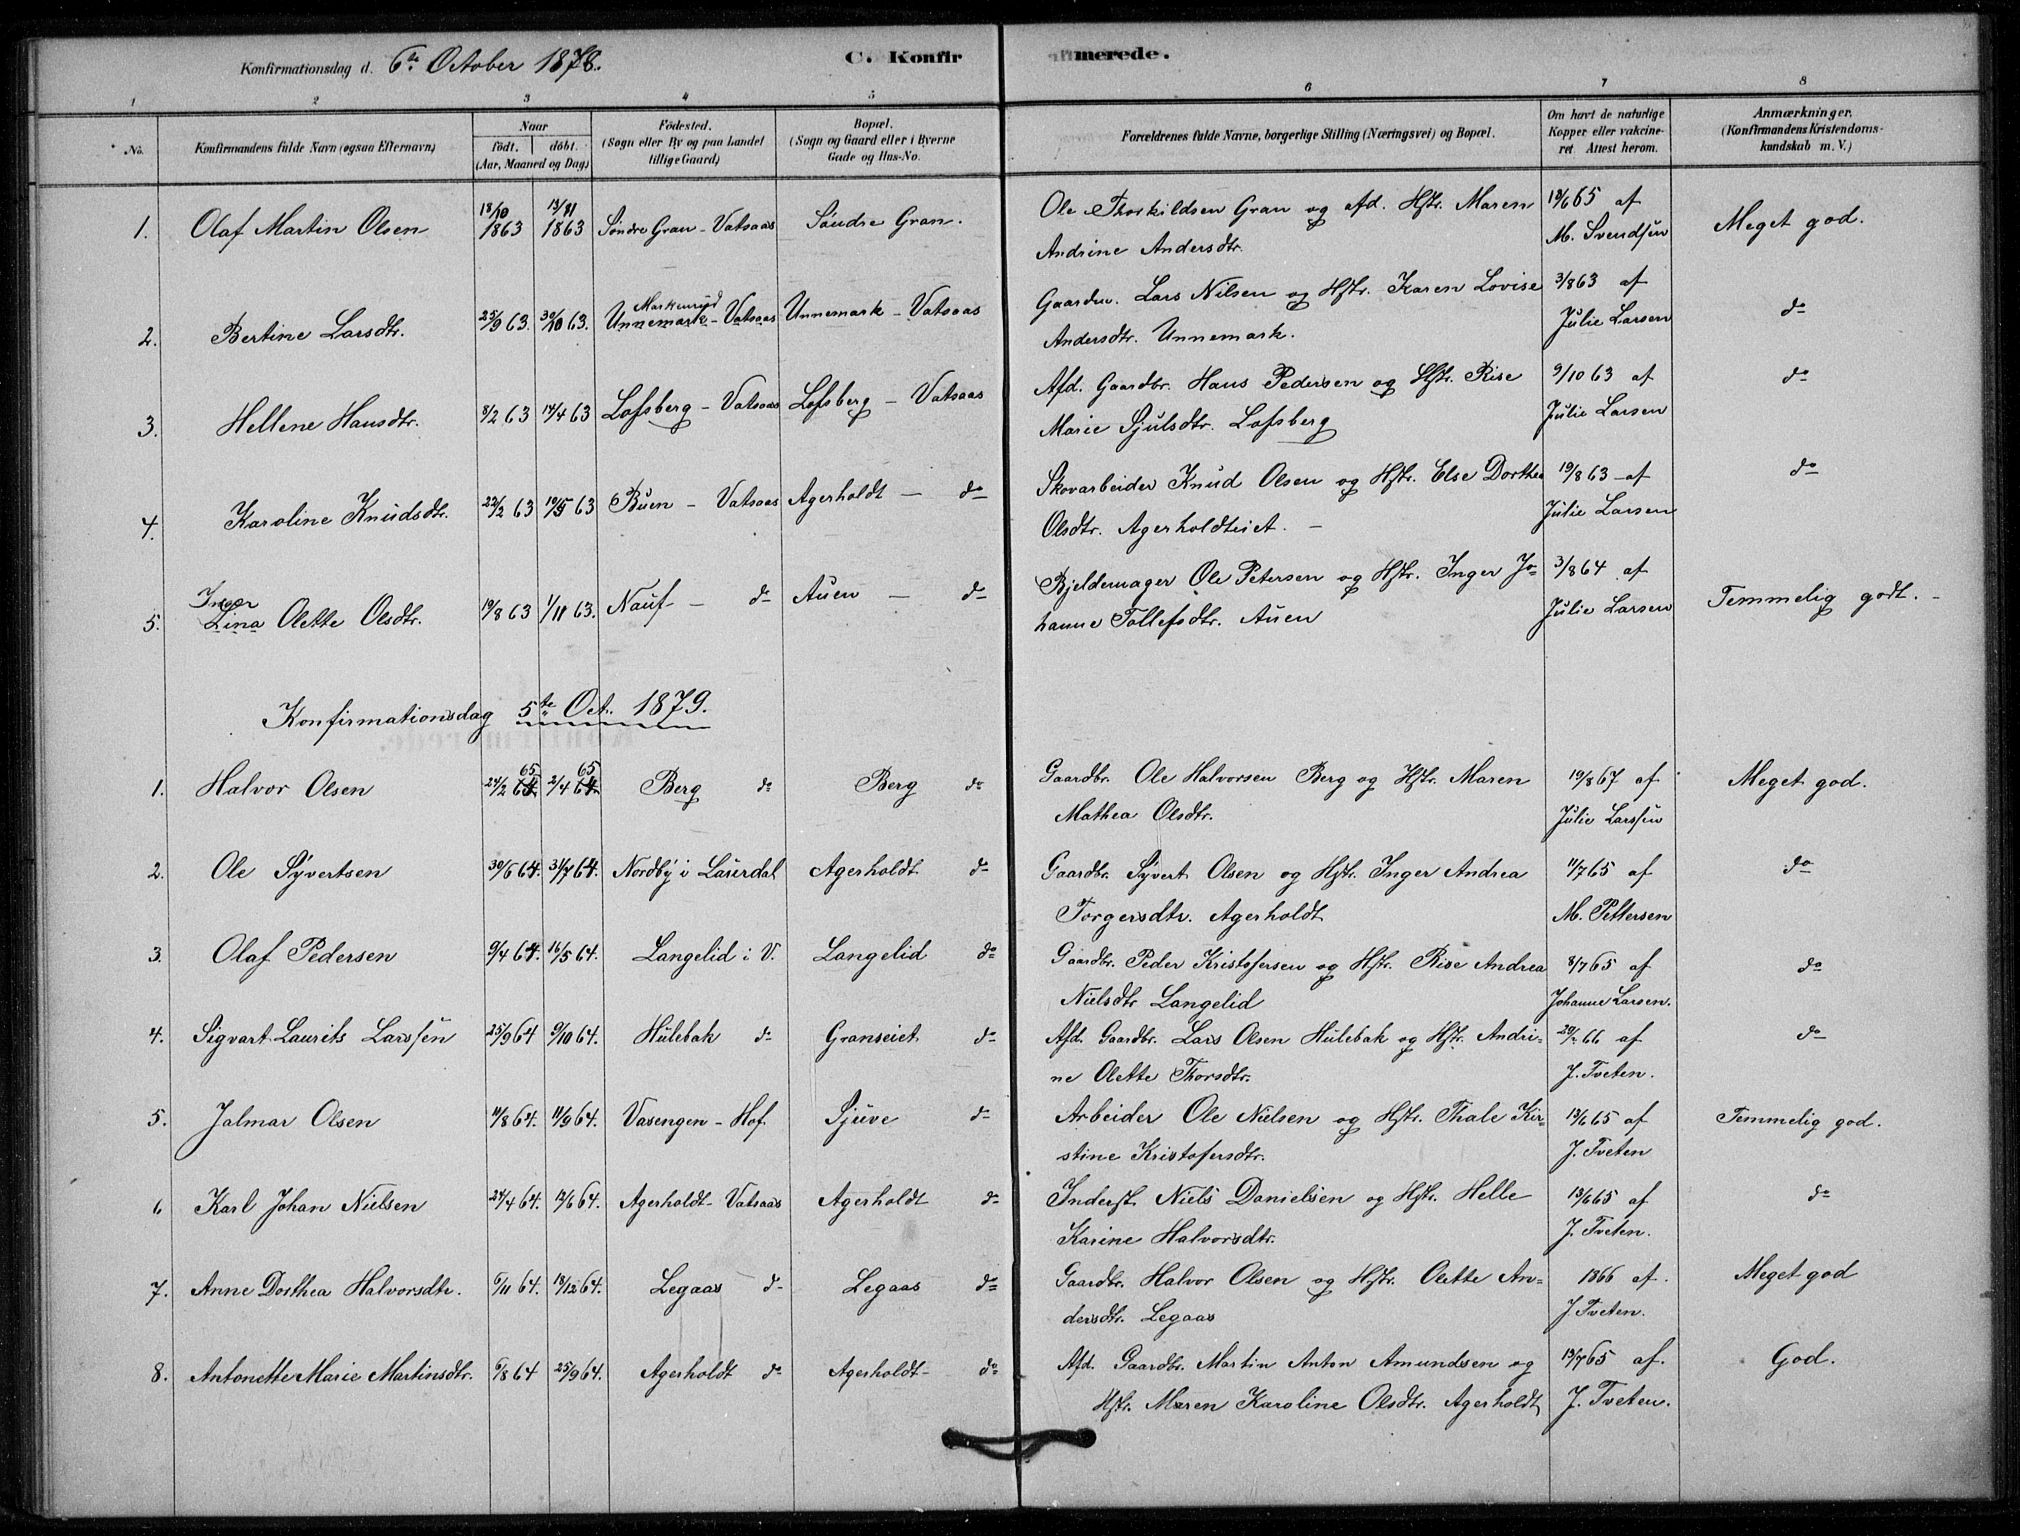 Konfirmationsdag d. 6te October 1878.
C. Konfirmerede.
1 2 3 4 5 6 7 8
No. Konfirmandens fulde Navn (ogsaa Efternavn) Naar født. døbt. (Aar, Maaned og Dag) Fødested. (Sogn eller By og paa Landet tillige Gaard) Bopæl. (Sogn og Gaard eller i Byerne Gade og Hus-No. Forældrenes fulde Navne, borgerlige Stilling (Næringsvei) og Bopæl. Om havt de naturlige Kopper eller vakcineret. Attest herom. Anmærkninger. (Konfirmandens Kristendomskundskab m. V.)
1. Olaf Martin Olsen 18/10 1863 13/11 1863 Søndre Gran - Vatsaas Søndre Gran. Ole Thorkildsen Gran og afd. Hstr. Maren 18/6 65 af Meget god.
Andrine Andersdtr. M. Svendsen
2. Bertine Larsdtr. 25/9 63. 30/10 63. Markenrud Unnemark - Vatsaas Unnemark - Vatsaas Gaardm. Lars Nilsen og Hstr. Karen Lovise 3/8 63 af do
Andersdtr. Unnemark. Julie Larsen
3. Hellene Hansdtr. 8/2 63 14/4 63 Lofsberg - Vatsaas Lofsberg - Vatsaas Afd. Gaardbr. Hans Pedersen og Hstr. Rise 9/10 63 af do
Marie Sjulsdtr. Lofsberg Julie Larsen
4. Karoline Knudsdtr. 22/2 63 10/5 63 Buen - Vatsaas Agerholdt - do Skovarbeider Knud Olsen og Hstr. Else Dorthea 19/8 63 - af do
Olsdtr. Agerholdteiet. - Julie Larsen
5. Inger Lina Olette Olsdtr. 19/8 63 1/11 63. Nauf - do Auen - do Bjeldemager Ole Petersen og Hstr. Inger Jo- 3/8 64 af Temmelig godt. -
hanne Tollefsdtr. Auen Julie Larsen
Konfirmationsdag 5te Oct. 1879.
1. Halvor Olsen 24/2 64 65 2/4 64 65 Berg do Berg do Gaardbr. Ole Halvorsen Berg og Hstr. Maren 19/8 67 af Meget god.
Mathea Olsdtr. Julie Larssen
2. Ole Syvertsen 30/6 64. 31/7 64. Nordby i Laurdal Agerholdt do Gaardbr. Syvert Olsen og Hstr. Inger Andrea 11/7 65 af do
Torgersdtr. Agerholdt M. Pettersen
3. Olaf Pedersen 9/4 64 16/5 64. Langelid i V. Langelid do Gaardbr. Peder Kristofersen og Hstr. Rise Andrea 8/7 65 af do
Nielsdtr Langelid Johanne Larsen.
4. Sigvart Laurits Larssen 25/9 64 9/10 64. Hulebak do Granseiet do Afd. Gaardbr. Lars Olsen Hulebak og Hstr. Andri- 66 af do
ne Olette Thorsdtr. J. Tveten.
5. Jalmar Olsen 11/8 64. 11/9 64. Vasengen - Hof Sjuve do Arbeider Ole Nielsen og Hstr. Thale Kir- 13/6 65 af Temmelig god.
stine Kristofersdtr. J. Tveten
6 Karl Johan Nielsen 24/4 64. 12/6 64. Agerholdt - Vatsaas Agerholdt do Inderst. Niels Danielsen og Hstr. Helle 13/6 65 af do
Karine Halvorsdtr. J. Tveten.
7. Anne Dorthea Halvorsdtr. 6/11 64. 18/12 64. Legaas do Legaas do Gaardbr. Halvor Olsen og Hstr. Olette An- 1866 af. Meget god
dersdtr. Legaas J. Tveten.
8. Antonette Marie Martinsdtr. 6/8 64 25/9 64. Agerholdt do Agerholdt - do Afd. Gaardbr. Martin Anton Amundsen og 13/7 65 af. God.
Hstr. Maren Karoline Olsdtr. Agerholdt J. Tveten.